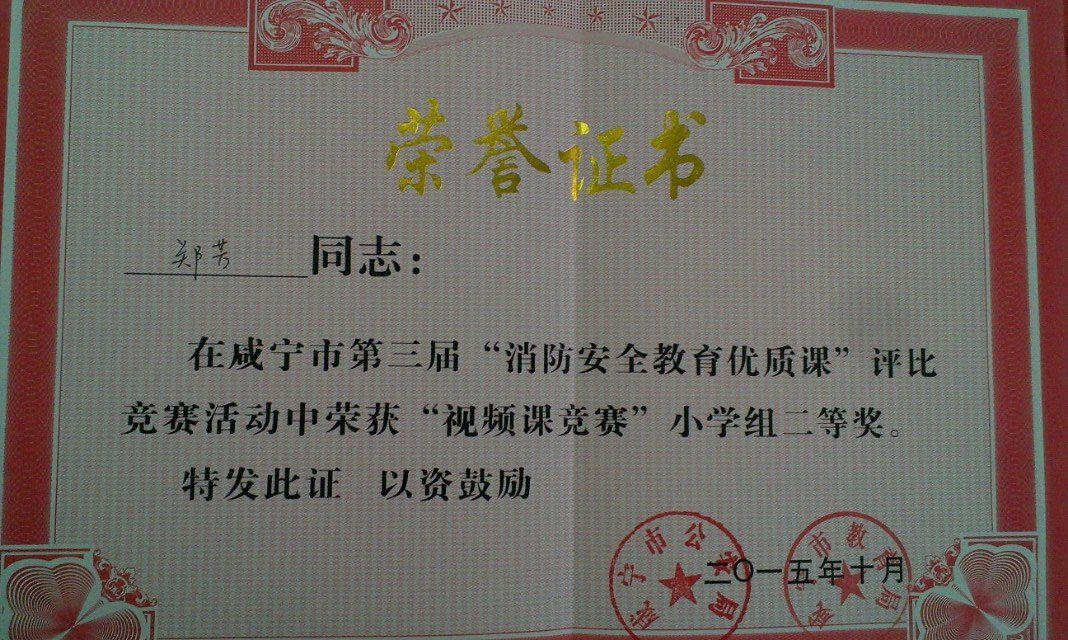 荣誉证书
郑芳 同志：
在咸宁市第三届“消防安全教育优质课”评比
竞赛活动中荣获“视频课竞赛”小学组二等奖。
特发此证 以资鼓励
咸宁市公安局
咸宁市教育局
二〇一五年十月